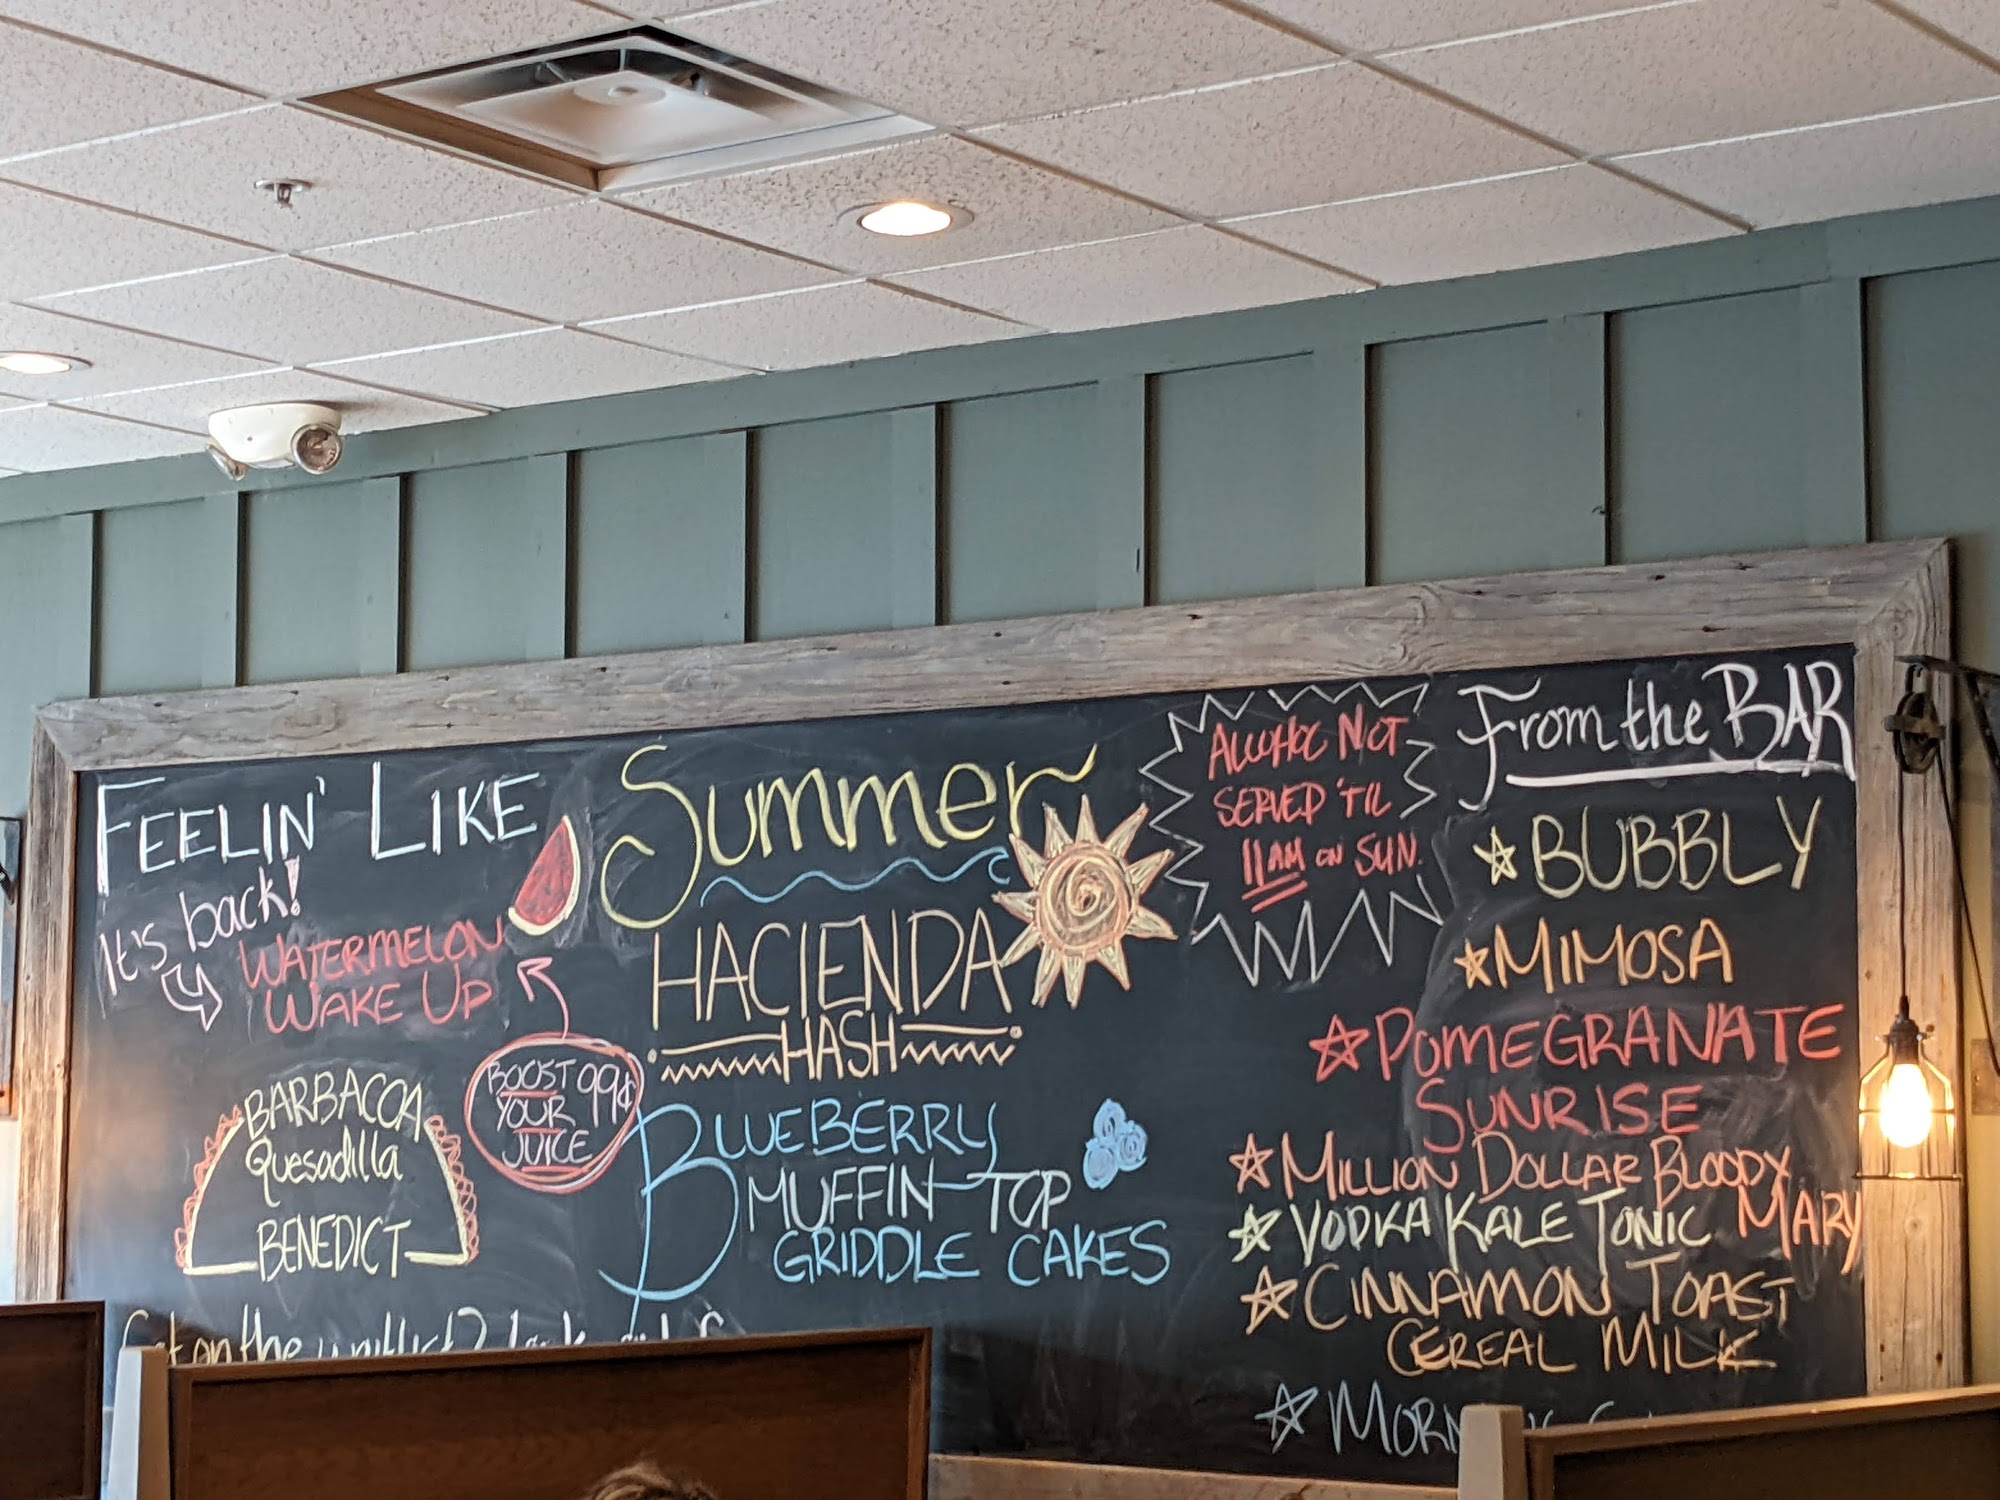 FEELIN' LIKE Summer
It's back!
WATERMELON
WAKE UP
BOOST 99¢
YOUR
JUICE
BARBACOA
Quesadilla
BENEDICT
HACIENDA
HASH
BLUEBERRY
MUFFIN TOP
GRIDDLE CAKES
on the
ALCOHOL NOT
SERVED 'TIL
11AM ON SUN.
From the BAR
BUBBLY
MIMOSA
POMEGRANATE
SUNRISE
MILLION DOLLAR BLOODY
MARY
VODKA KALE TONIC
CINNAMON TOAST
CEREAL MILK